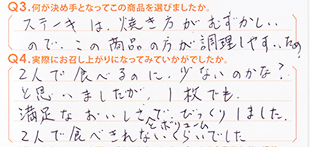 Q3.何が決め手となってこの商品を選びましたか。
ステーキは、焼き方がむずかしい
ので、この商品の方が調理しやすいため
Q4.実際にお召し上がりになってみていかがでしたか。
2人で食べるのに、少ないのかな?
と思いましたが、1枚でも、
満足なおいしさとボリュームで、びっくりしました。
2人で食べきれないくらいでした